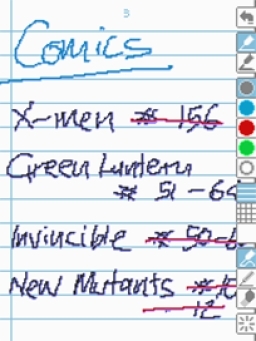 3
Comics
X-men # 156
Green Lantern
# 51-64
Invincible # 50-6
New Mutants #10
12